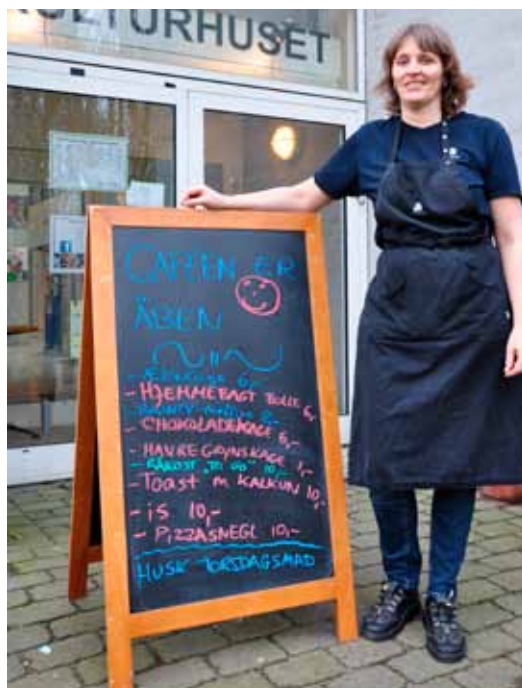 KULTURHUSET
CAFEEN ER
ÅBEN
- HJEMMEBAGT BOLLE 6,-
- CHOKOLADEKAGE 6,-
- HAVREGRYNSKAGE 1,-
- RÅKOST "TO GO" 10,-
- TOAST M KALKUN 10,-
- is 10,-
- PIZZASNEGL 10,-
HUSK TORSDAGSMAD